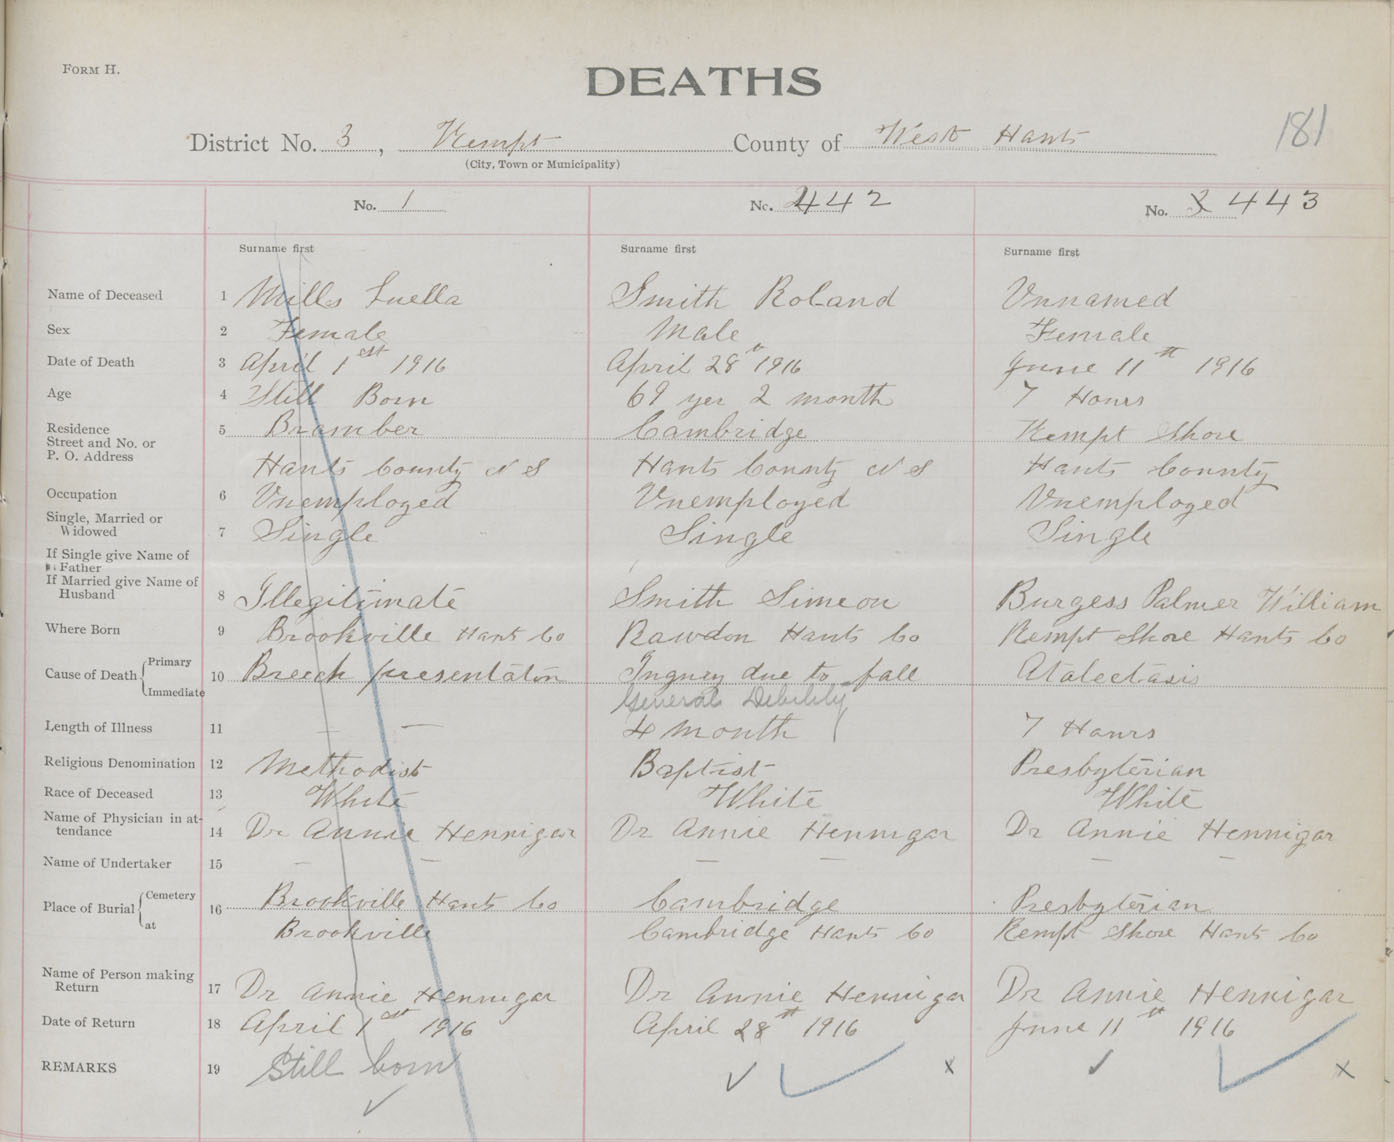 FORM H.
DEATHS
181
District No. 3, Kempt County of West Hants
(City, Town or Municipality)
No. 1 No. 442 No. 3 443
Surname first Surname first Surname first
Name of Deceased 1 Mills Luella Smith Roland Unnamed
Sex 2 Female Male Female
Date of Death 3 April 1est 1916 April 28th 1916 June 11st 1916
Age 4 Still Born 69 yer 2 month 7 Hours
Residence
Street and No. or
P. O. Address
5 Bramber Cambridge Kempt Shore
Hants County N S Hants County N S Hants County
Occupation 6 Unemployed Unemployed Unemployed
Single, Married or
Widowed 7 Single Single Single
If Single give Name of
Father
If Married give Name of
Husband 8 Illegitimate Smith Simeon Burgess Palmer William
Where Born 9 Brookville Hants Co Rawdon Hants Co Kempt Shore Hants Co
Cause of Death Primary
Immediate
10 Breech presentation Ingury due to fall Atalectasis
General Debility
Length of Illness 11 — — 4 month 7 Hours
Religious Denomination 12 Methodist Baptist Presbyterian
Race of Deceased 13 White White White
Name of Physician in at-
tendance 14 Dr Annie Hennigar Dr Annie Hennigar Dr Annie Hennigar
Name of Undertaker 15 — — — — — —
Place of Burial Cemetery
at
16 Brookville Hants Co Cambridge Presbyterian
Brookville Cambridge Hants Co Kempt Shore Hants Co
Name of Person making
Return 17 Dr Annie Hennigar Dr Annie Hennigar Dr Annie Hennigar
Date of Return 18 April 1est 1916 April 28st 1916 June 11st 1916
REMARKS 19 Still born ✓ ✓ ✓ x ✓ ✓ x